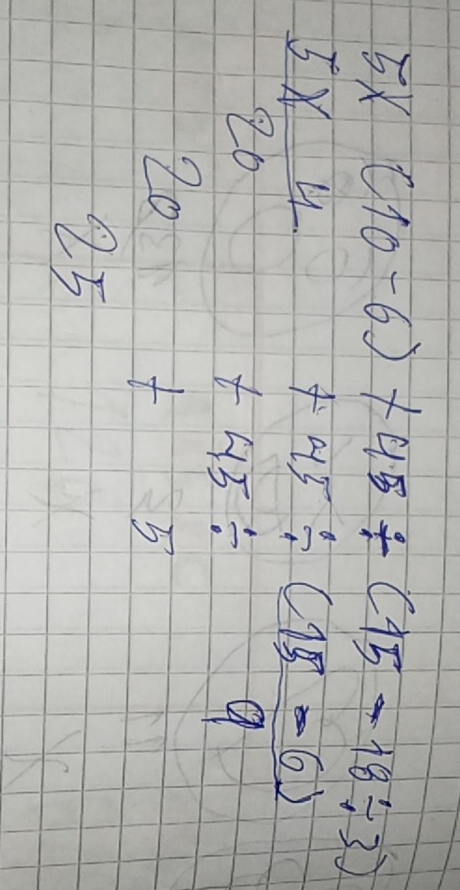 5 × (10 - 6) + 45 ÷ (15 - 18 ÷ 3)
5 × 4 + 45 ÷ (15 - 6)
20 + 45 ÷ 9
20 + 5
25